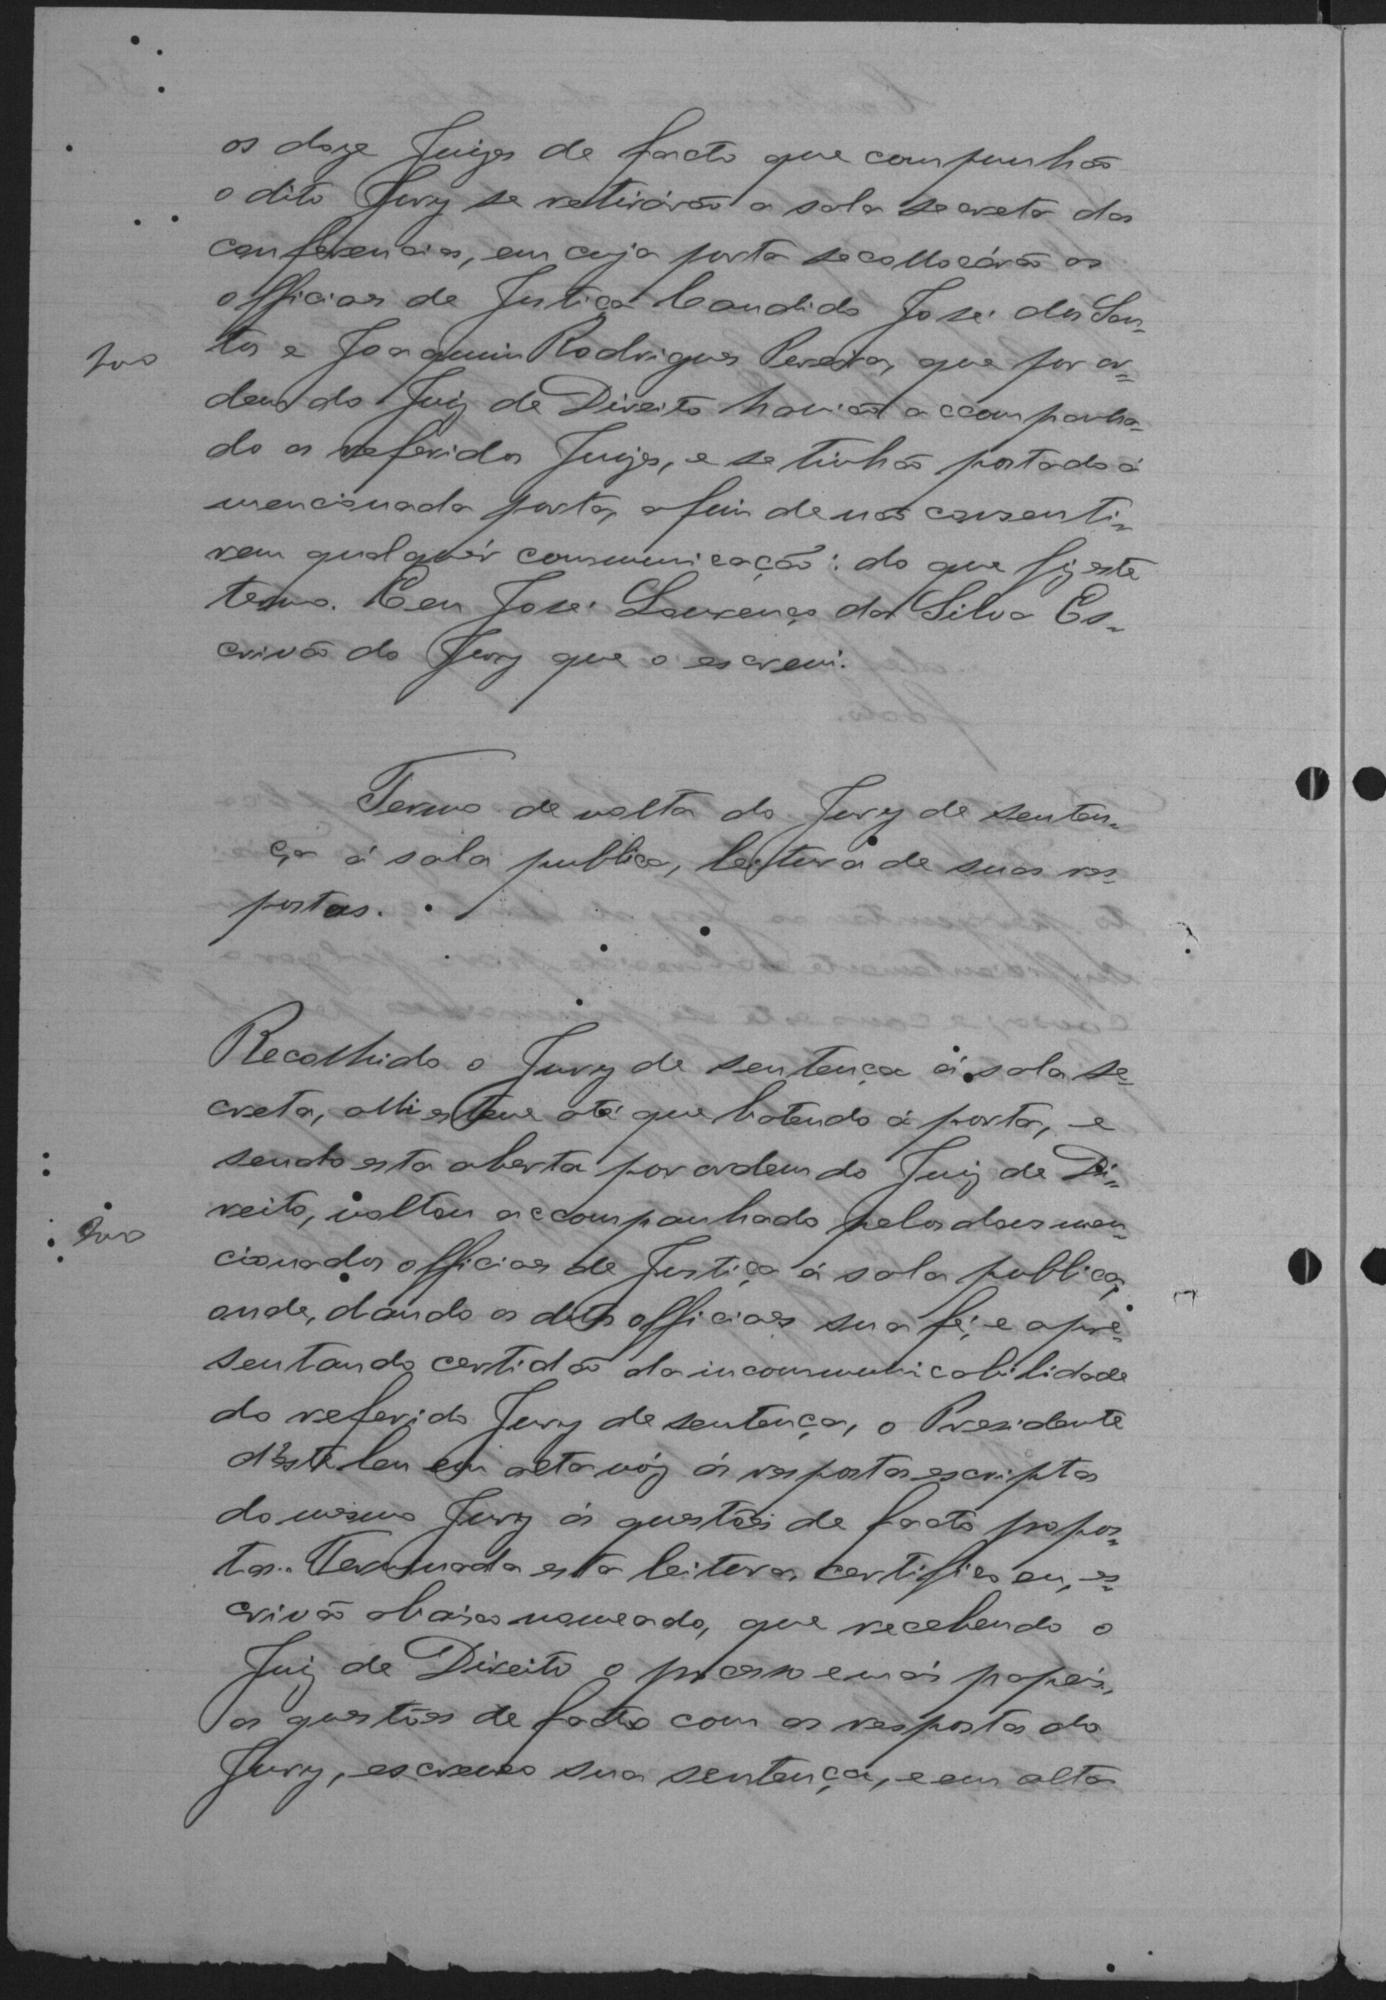 os doze Juizes de facto que compunhão
o dito Jury se retirárão a sala secreta das
conferencias, em cuja porta se collocárão os
officiaes de Justiça Candido José dos San-
tos e Joaquim Rodrigues Pereira, que por or-
dem do Juiz de Direito havião accompanha-
do os referidos Juizes, e se tinhão postado á
mencionada porta, afim de não consenti-
rem qualquér communicação: do que fiz este
termo. Eu José Lourenço da Silva Es-
crivão do Jury que o escrevi.
Termo de volta do Jury de senten-
ça á sala publica, leitura de suas res-
postas.
Recolhido o Jury de sentença á sala se-
creta, alli esteve até que batendo á porta, e
sendo esta aberta por ordem do Juiz de Di-
reito, voltou accompanhado pelos dous men-
cionados officiaes de Justiça á sala publica,
onde, dando os ditos officiaes sua fé, e apre-
sentando certidão da incommunicabilidade
do referido Jury de sentença, o Presidente
d'este leu em alta vóz ás respostas escriptas
do mesmo Jury ás questões de facto propos-
tas. Terminada esta leitura, certifico eu, es-
crivão abaixo nomeado, que recebendo o
Juiz de Direito o processo e más papeis,
as questões de facto com as respostas do
Jury, escreveo sua sentença, e em alta